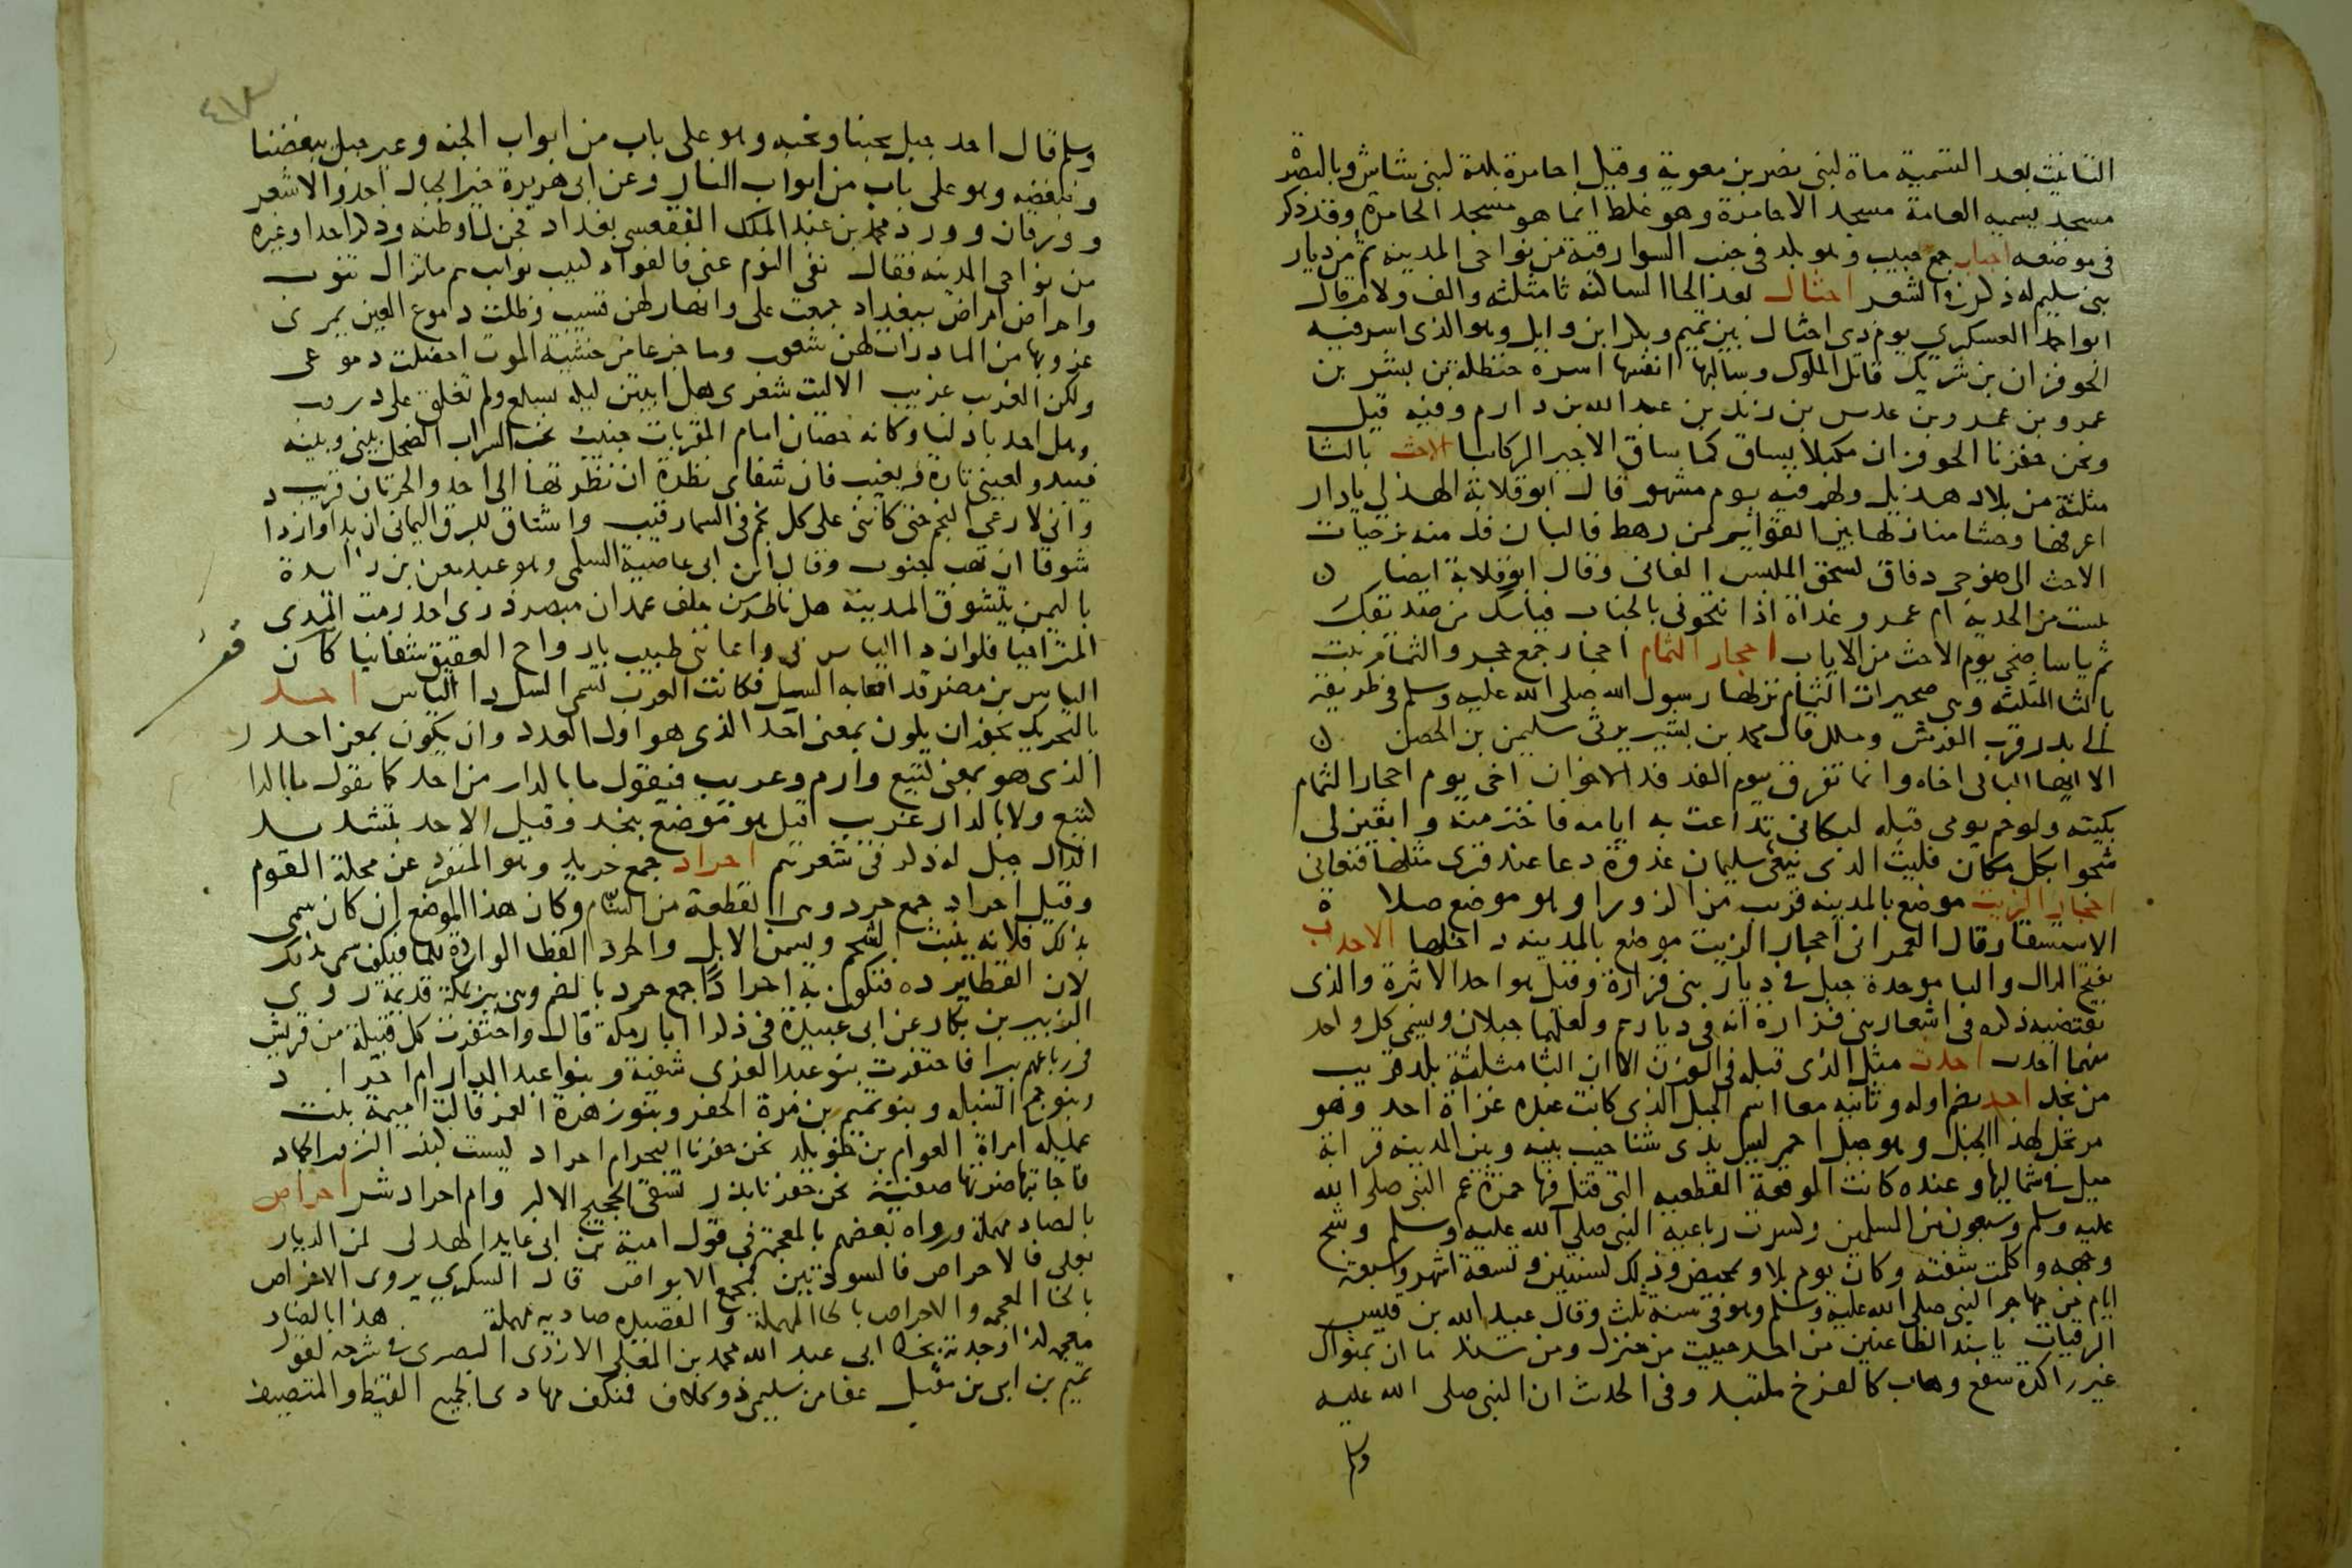 التانيث بعد التسمية ماة لبنى نصر بن معوية وقيل احامرة بلدة لبنى شاش وبالبصرة
مسجد يسميه العامة مسجد الاحامرة وهو غلط انما هو مسجد الحامرة وقد ذكر
فى موضعه احباب جمع حبيب وهو بلد فى جنب السوارقية من نواحى المدينه ثم من ديار
بنى سليم له ذكر فى الشعر احثال بعد الحا الساكنه ثا مثلثه والف ولام قال
ابو احمد العسكري يوم ذى احثال بين تميم وبكر ابن وايل وهو الذى اسر فيه
الحوفزان بن شريك قاتل الملوك وسالبها انفسها اسره حنظلة بن بشر بن
عمرو بن عمرو بن عدس بن زيد بن عبد الله بن دارم وفيه قيل
ونحن حفزنا الحوفزان مكبلا يساق كما ساق الاجير الركابا الاحث بالثا
مثلثة من بلاد هذيل ولهم فيه يوم مشهور قال ابو قلابة الهذلى يا دار
اعرفها وحشا منازلها بين القوايم من رهط فالبان فدمنه برحيات
الاحث الى ضوجى دفاق كسحق الملبس الفانى وقال ابو قلابة ايضا
يئست من الحدية ام عمرو غداة اذا انتحونى بالجناب فياسك من صديقك
ثم ياسا ضحى يوم الاحث من الاياب احجار الثمام احجار جمع حجر والثمام نبت
بالثا المثلثه وهى صخيرات الثمام نزلها رسول الله صلى الله عليه وسلم فى طريقه
الى بدر قرب الفرش وملل قال محمد بن بشير يرثى سليمن بن الحصين
الا ايها الباكى اخاه وانما تفرق يوم الفدفد الاخوان اخى يوم احجار الثمام
بكيته ولو حم يومى قبله لبكانى تداعت به ايامه فاخترمنه وابقين لى
شجوا بكل مكان فليت الذى ينعى سليمان غدوة دعا عند قبرى مثلها فنعانى
احجار الزيت موضع بالمدينه قريب من الزورا وهو موضع صلاة
الاستسقا وقال العمرانى احجار الزيت موضع بالمدينه داخلها الاحدب
بفتح الدال والبا موحدة جبل فى ديار بنى فزارة وقيل هو احد الاثبرة والذى
يقتضيه ذكره فى اشعار بنى فزارة انه فى ديارهم ولعلهما جبلان ويسمى كل واحد
منهما احدب احدث مثل الذى قبله فى الوزن الا ان الثا مثلثة بلد قريب
من نجد احد بضم اوله وثانيه معا اسم الجبل الذى كانت عنده غزاة احد وهو
مرتجل لهذا الجبل وهو جبل احمر ليس بذى شناخيب بينه وبين المدينه قرابة
ميل فى شماليها وعنده كانت الوقعة الفظيعه التى قتل فيها حمزة عم النبى صلى الله
عليه وسلم وسبعون من المسلمين وكسرت رباعية النبى صلى الله عليه وسلم وشج
وجهه وكلمت شفته وكان يوم بلاو تمحيض وذلك لسنتين وتسعة اشهر وسبعة
ايام من مهاجر النبى صلى الله عليه وسلم وهو فى سنة ثلث وقال عبيد الله بن قيس
الرقيات يا سيد الظاعنين من احد حييت من منزل ومن سند ما ان بمثواك
غير راكدة سفع وهاب كالفرخ ملتبد وفى الحديث ان النبى صلى الله عليه
وسلم
وسلم قال احد جبل يحبنا ونحبه وهو على باب من ابواب الجنه وعير جبل يبغضنا
ونبغضه وهو على باب من ابواب النار وعن ابى هريرة خير الجبال احد والاشعر
وورقان وورد محمد بن عبد الملك الفقعسى بغداد فحن الى وطنه وذكر احدا وغيره
من نواحى المدينه فقال نفى النوم عنى فالفواد كئيب نوائب هم ما تزال تنوب
واحراض امراض ببغداد جمعت على وانهار لهن قسيب وظلت دموع العين تمرى
غروبها من الما درات لهن شعوب وما جزعا من خشية الموت اخضلت دموعى
ولكن الغريب غريب الا ليت شعرى هل ابيتن ليله بسلع ولم تغلق على دروب
وهل احد باد لنا وكانه حصان امام المقربات جنيب تخب السراب الضحل بينى وبينه
فيبدو لعينى تارة ويغيب فان شفاى نظرة ان نظرتها الى احد والحرتان قريب
وانى لارعى النجم حتى كاننى على كل نجم فى السما رقيب واشتاق للبرق اليمانى ان بدا وازدا
شوقا ان تهب جنوب وقال ابن ابى عاصية السلمى وهو عند معن بن زائدة
باليمن يتشوق المدينه هل ناظر من خلف غمدان مبصر ذرى احد رمت المدى
المتراخيا فلو ان دا الياس بى واعاننى طبيب بارواح العقيق شفانيا كان
الياس بن مضر قد اصابه السل فكانت العرب تسمى السل دا الياس احد
بالتحريك يجوز ان يكون بمعنى احد الذى هو اول العدد وان يكون بمعنى احد
الذى هو بمعنى كتيع وارم وعريب فيقول ما بالدار من احد كما تقول ما بالدار
كتيع ولا بالدار عريب قيل هو موضع بنجد وقيل الاحد بتشديد
الدال جبل له ذكر فى شعرهم احراد جمع حريد وهو المنفرد عن محلة القوم
وقيل احراد جمع حرد وهى القطعة من السنام وكان هذا الموضع ان كان سمى
بذلك فلانه ينبت الشحم ويسمن الابل والحرد القطا الواردة للما فيكون سمى بذلك
لان القطا يرده فتكون به احرادا جمع حرد بالضم وهى بئر بمكة قديمة روى
الزبير بن بكار عن ابى عبيدة فى ذكر ابار مكة قال واحتفرت كل قبيلة من قريش
فى رباعهم بيرا فاحتفرت بنو عبد العزى شفية وبنوا عبد الدار ام احراد
وبنو جمح السنبله وبنو تميم بن مرة الحفر وبنو زهرة الغمر قالت اميمة بنت
عميله امراة العوام بن خويلد نحن حفرنا البحر ام احراد ليست كبذر النزور الجماد
فاجابتها ضرتها صفية نحن حفرنا بذر تسقى الحجيج الاكبر وام احراد شر احراص
بالصاد مهملة ورواه بعضهم بالمعجمة فى قول امية بن ابى عايد الهذلى لمن الديار
بعلى فالاحراص فالسودتين فمجمع الابواص قال السكري يروى الاخراص
بالخا المعجمه والاحراص بالحا المهملة والقصيده صاديه مهملة هذا بالضاد
معجمه كذا وجدته بخط ابى عبد الله محمد بن المعلى الازدى البصرى فى شرحه لقول
تميم بن ابى بن مقبل عفا من سليمى ذو كلاف فمنكف مبادى الجميع القيظ والمتصيف